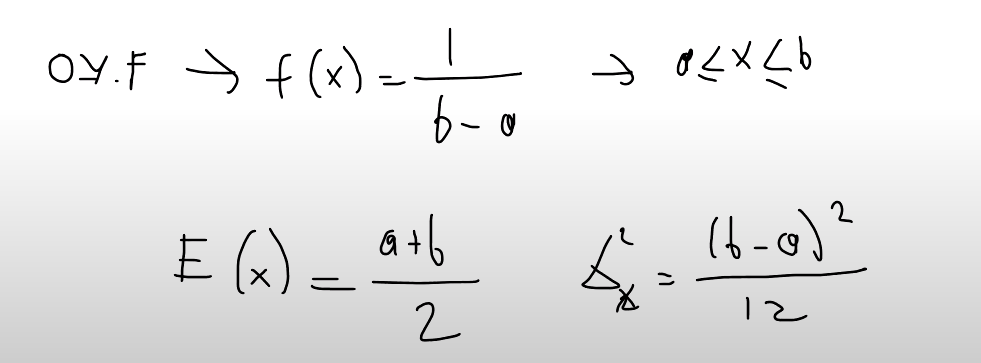 O.Y.F → f(x) = 1/(b-a) → a ≤ x ≤ b
E(x) = (a+b)/2 σ²ₓ = (b-a)²/12